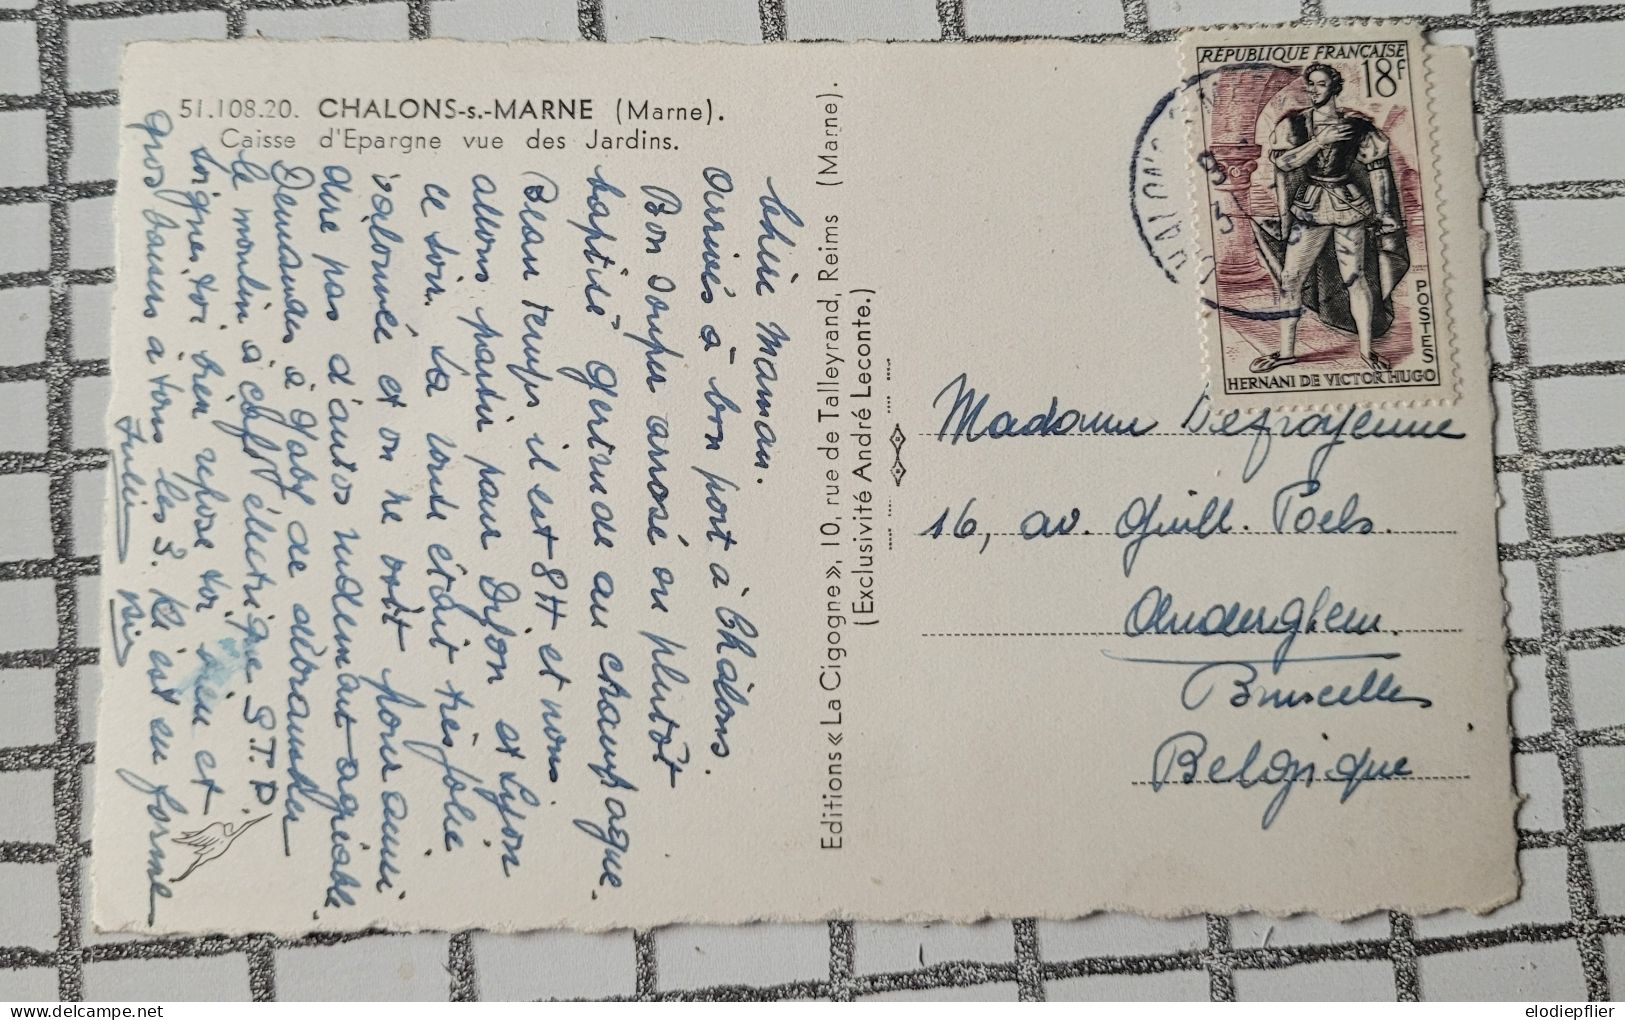 51.108.20. CHALONS-s.-MARNE (Marne).
Caisse d'Epargne vue des Jardins.
Chère Maman.
Arrivés à bon port à Châlons.
Bon souper arrosé ou plutôt
baptisé Gertrude au champagne.
Beau temps il est 8H et nous
allons partir pour Dijon et Lyon
ce soir. La route était très jolie
valonnée et on ne voit pour ainsi
dire pas d'autos rudement agréable.
Demandes à Gaby de
le moulin à café électrique S.T.P.
Soignes toi bien repose toi bien et
gros baisers à tous les 3. Ri est en forme
Editions « La Cigogne », 10, rue de Talleyrand, Reims (Marne).
(Exclusivité André Leconte.)
RÉPUBLIQUE FRANÇAISE
18F
POSTES
HERNANI DE VICTOR HUGO
Madame Defroyenne
16, av. Guill. Poels.
Auderghem.
Bruxelles
Belgique
elodiepflier